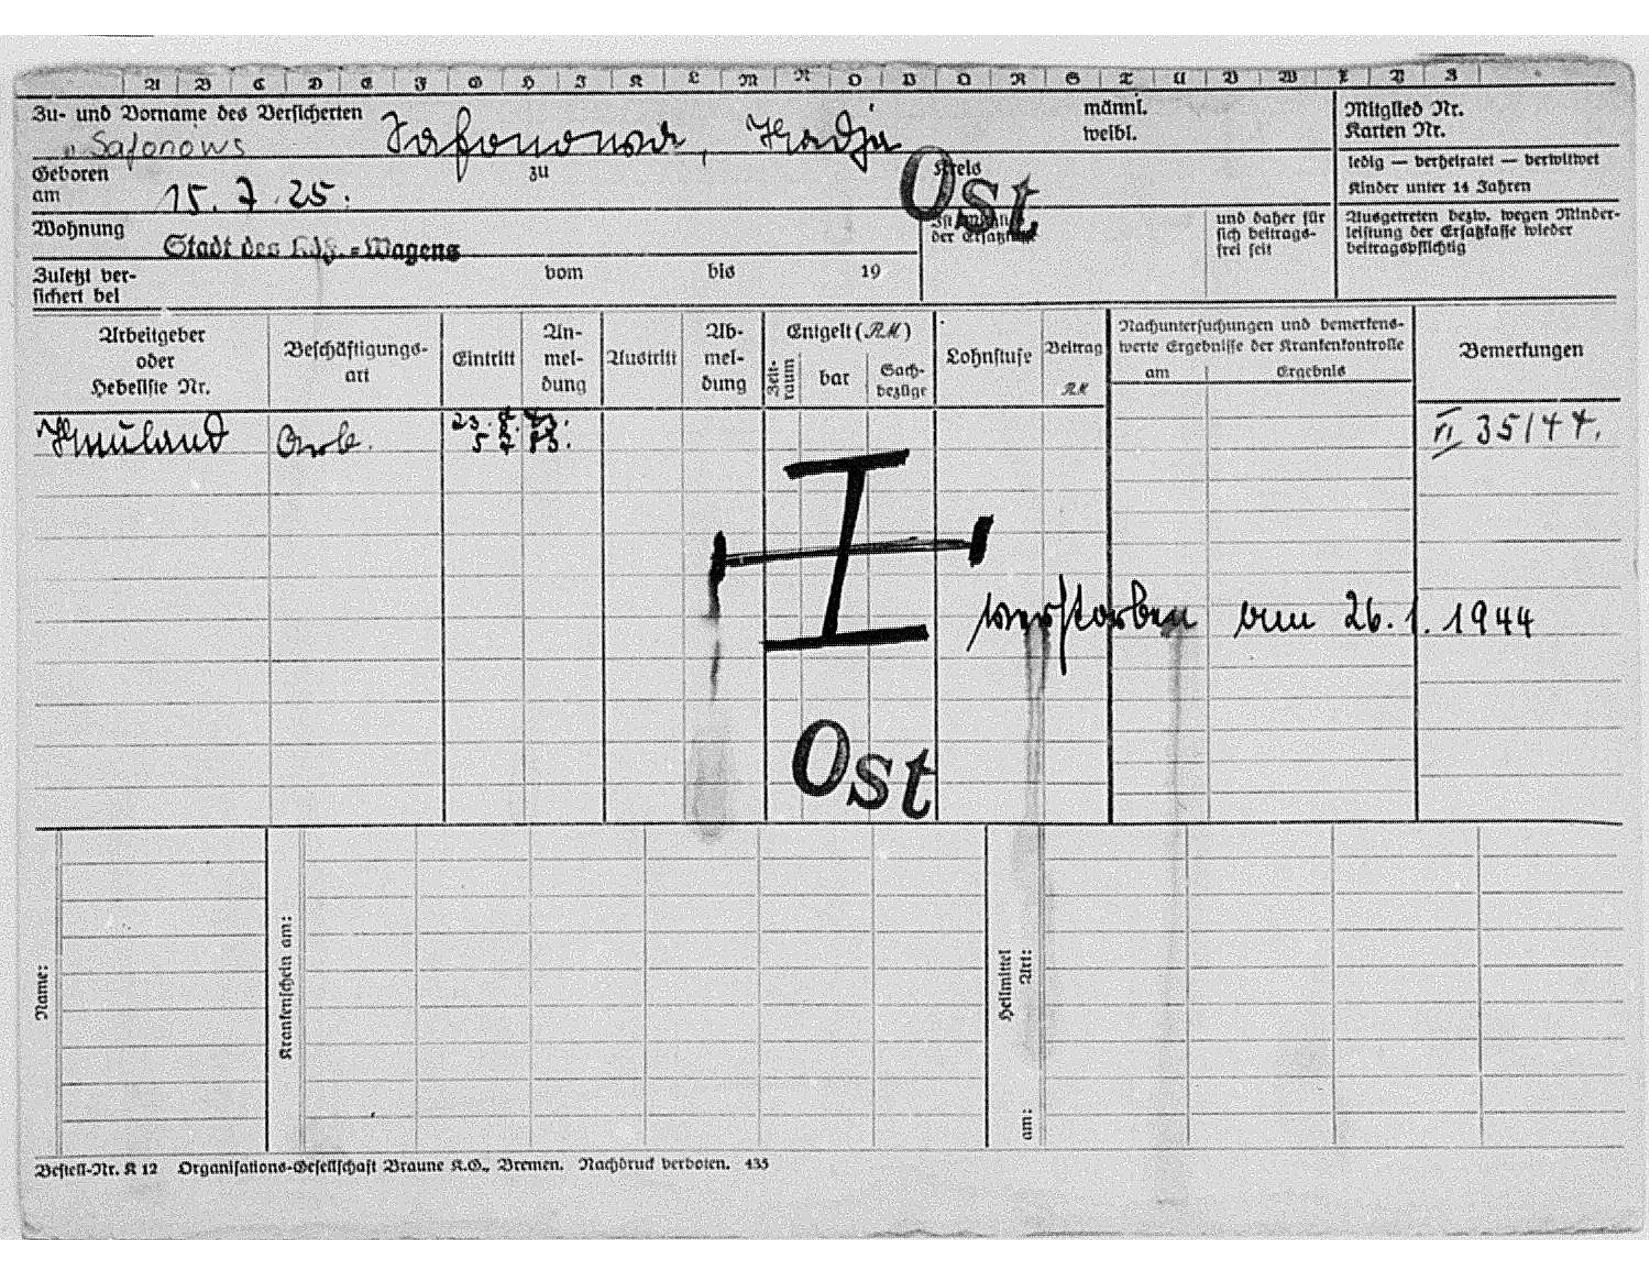 A B C D E F G H I K L M N O P Q R S T U V W X Y Z
Zu- und Vorname des Versicherten
Safonowa, Nadja
" Safonows
männl.
weibl.
Mitglied Nr.
Karten Nr.
Geboren
am 15. 7. 25.
zu
Kreis
Ost
ledig — verheiratet — verwitwet
Kinder unter 14 Jahren
Wohnung Stadt des KdF.-Wagens
der Ersatzkasse
und daher für
sich beitrags-
frei seit
Ausgetreten bezw. wegen Minder-
leistung der Ersatzkasse wieder
beitragspflichtig
Zuletzt ver-
sichert bei
vom bis 19
Arbeitgeber
oder
Hebeliste Nr.
Beschäftigungs-
art
Eintritt
An-
mel-
dung
Austritt
Ab-
mel-
dung
Entgelt (RM)
Zeit-
raum
bar
Sach-
bezüge
Lohnstufe
Beitrag
RM
Nachuntersuchungen und bemerkens-
werte Ergebnisse der Krankenkontrolle
am Ergebnis
Bemerkungen
Arb.
VI 35/44.
I
verstorben am 26. 1. 1944
Ost
Name:
Krankenschein am:
Heilmittel
Art:
am:
Bestell-Nr. K 12 Organisations-Gesellschaft Braune K.G., Bremen. Nachdruck verboten. 435